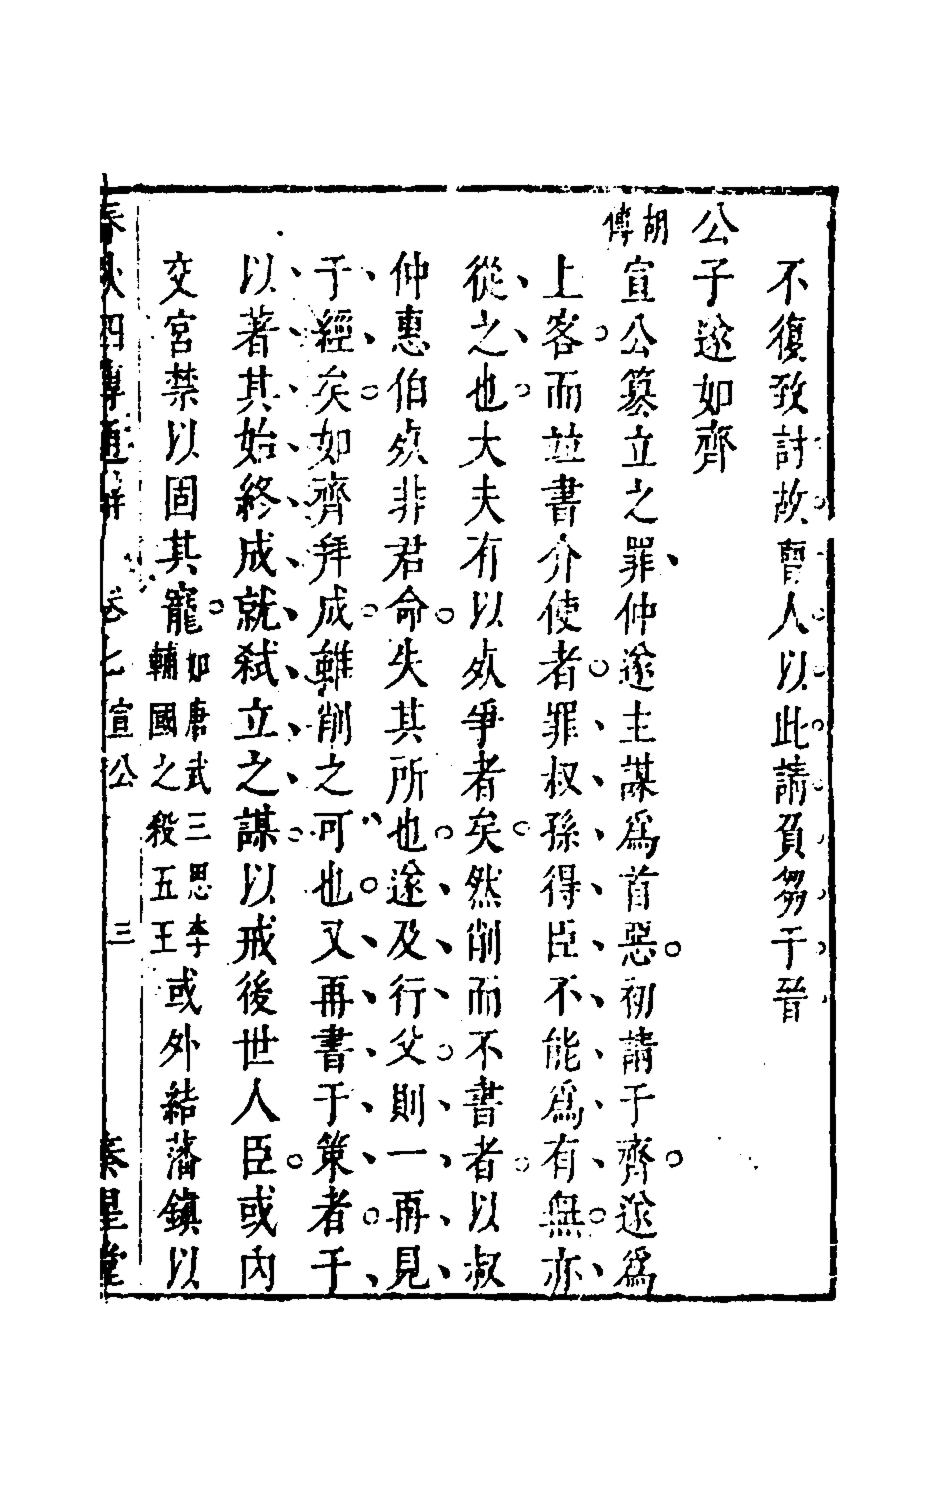 不復致討故曹人以此請負芻于晉
公子遂如齊
胡傳
宣公簒立之罪仲遂主謀爲首惡初請于齊遂爲
上客而並書介使者罪叔孫得臣不能爲有無亦
從之也大夫有以死爭者矣然削而不書者以叔
仲惠伯死非君命失其所也遂及行父則一再見
于經矣如齊拜成雖削之可也又再書于策者于
以著其始終成就弑立之謀以戒後世人臣或內
交宮禁以固其寵如唐武三思李輔國之殺五王或外結藩鎮以
春秋四傳通辭 卷七 宣公 三